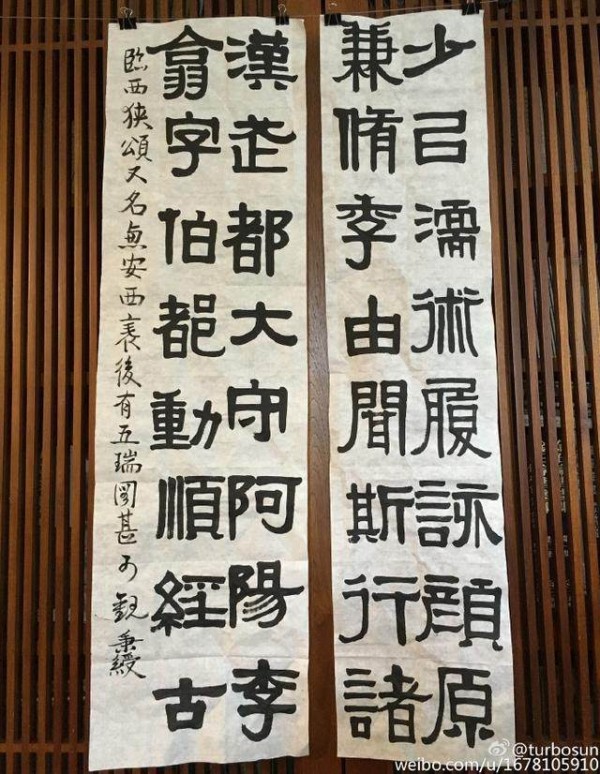 少㠯濡術履詠顏原
兼脩季由聞斯行諸
漢武都大守阿陽李
翕字伯都動順經古
臨西狹頌又名惠安西表後有五瑞圖甚可觀秉綬
@turbosun
weibo.com/u/1678105910